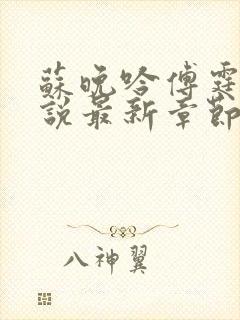 蘇晚吟傅霆
說最新章節
八神翼